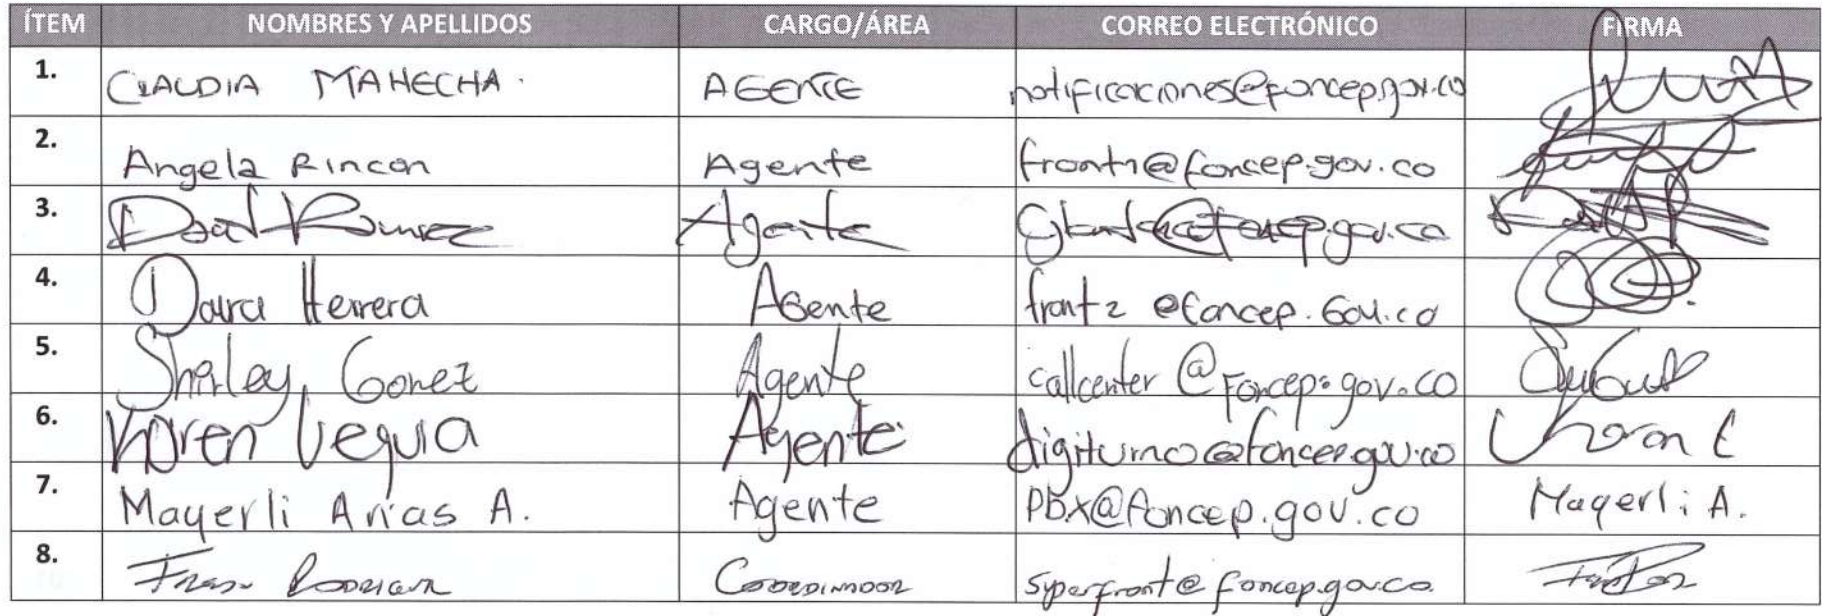 ÍTEM NOMBRES Y APELLIDOS CARGO/ÁREA CORREO ELECTRÓNICO FIRMA
1. CLAUDIA MAHECHA. AGENTE notificaciones@foncep.gov.co
2. Angela Rincon Agente front1@foncep.gov.co
3. Agente @foncep.gov.co
4. Daira Herrera Agente front2 @foncep.Gov.co
5. Shirley Gomez Agente callcenter @Foncep.gov.co
6. Karen Veguia Agente digiturno@foncep.gov.co
7. Mayerli Arias A. Agente Pbx@foncep.gov.co Mayerli A.
8. Coordinador superfront@foncep.gov.co